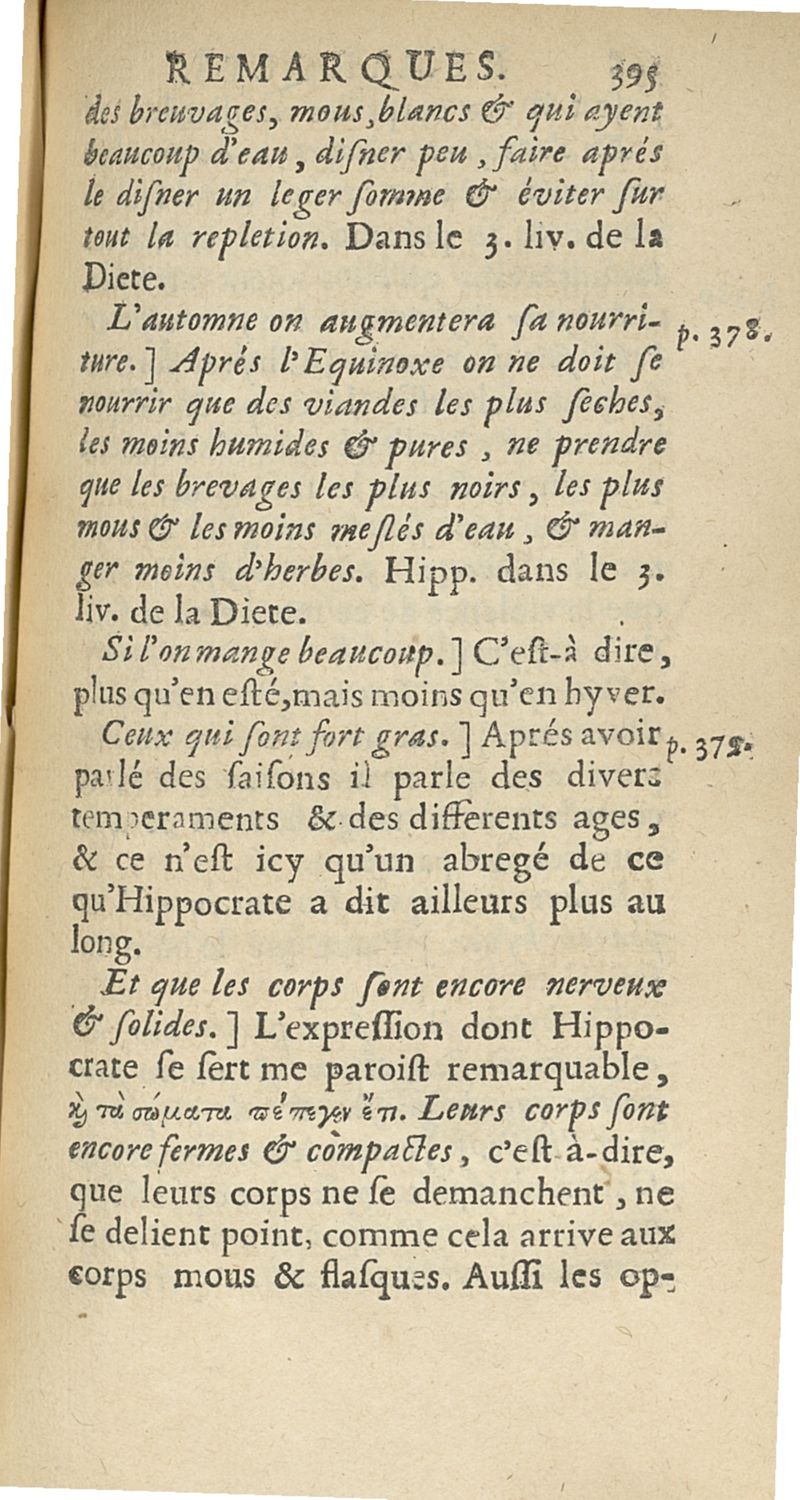 REMARQUES. 395
des breuvages, mous, blancs & qui ayent
beaucoup d'eau, diſner peu, faire aprés
le diſner un leger ſomme & éviter ſur
tout la repletion. Dans le 3. liv. de la
Diete.
L'automne on augmentera ſa nourri- p. 378.
ture.] Aprés l'Equinoxe on ne doit ſe
nourrir que des viandes les plus ſeches,
les moins humides & pures, ne prendre
que les brevages les plus noirs, les plus
mous & les moins meſlés d'eau, & man-
ger moins d'herbes. Hipp. dans le 3.
liv. de la Diete.
Si l'on mange beaucoup.] C'eſt-à dire,
plus qu'en eſté, mais moins qu'en hyver.
Ceux qui ſont fort gras.] Aprés avoir p. 379.
parlé des ſaiſons il parle des divers
temperaments & des differents ages,
& ce n'eſt icy qu'un abregé de ce
qu'Hippocrate a dit ailleurs plus au
long.
Et que les corps ſont encore nerveux
& ſolides.] L'expreſſion dont Hippo-
crate ſe ſert me paroiſt remarquable,
ϗ̀ τὰ σώματα πέπηγεν ἔτι. Leurs corps ſont
encore fermes & còmpactes, c'eſt à-dire,
que leurs corps ne ſe demanchent, ne
ſe delient point, comme cela arrive aux
corps mous & flaſques. Auſſi les op-